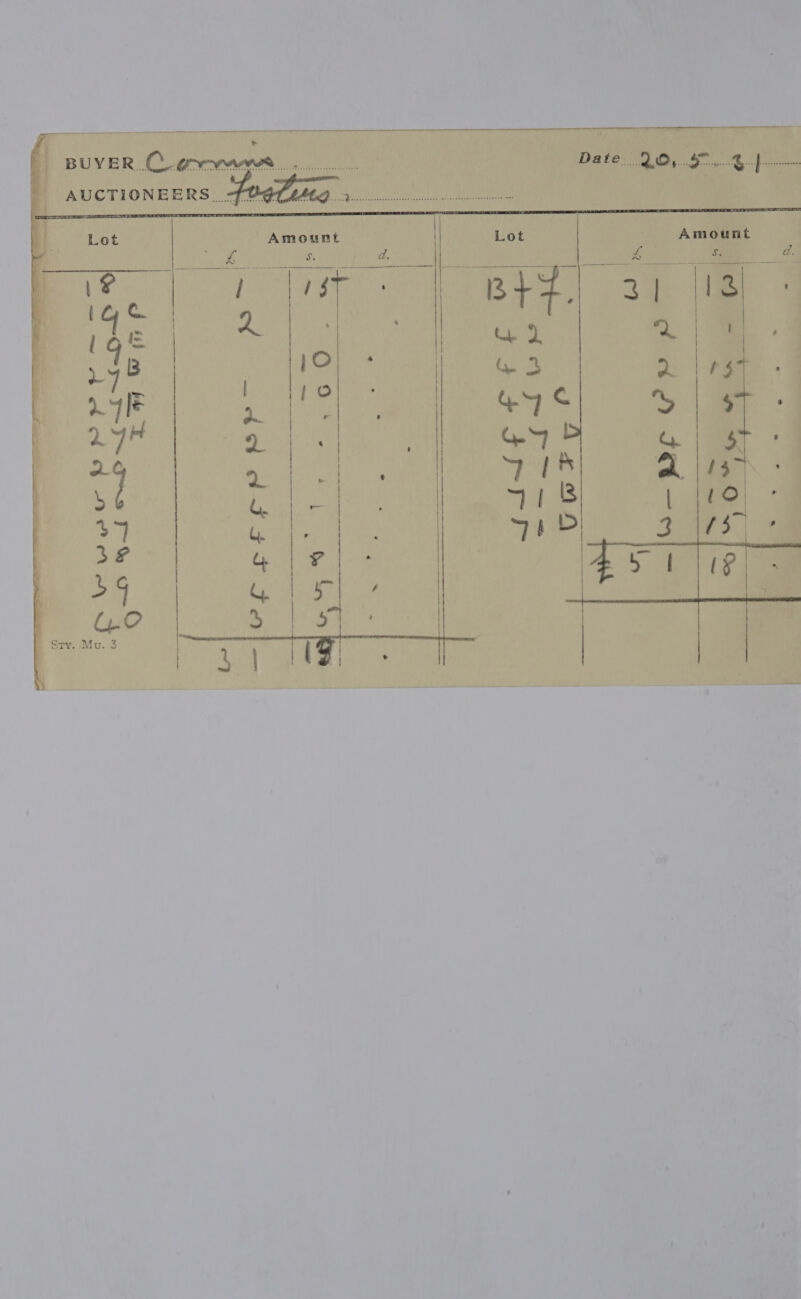 BUYER Date 20. 5. 31
AUCTIONEERS Foster
Lot Amount Lot Amount
£ s. d. £ s. d.
18 1 15 . B+F. 31 13 .
19C 2 . . 42 2 . .
19E 10 . 43 2 15 .
27B 1 10 . 47C 3 5 .
27F 2 . . 47D 4 5 .
27H 2 . . 71A 2 15 .
29 2 . . 71B 1 10 .
36 4 . . 71D 3 15 .
37 4 . . £51 18 .
38 4 8 .
39 4 5 .
40 3 5 .
STY. MU. 3
31 18 .